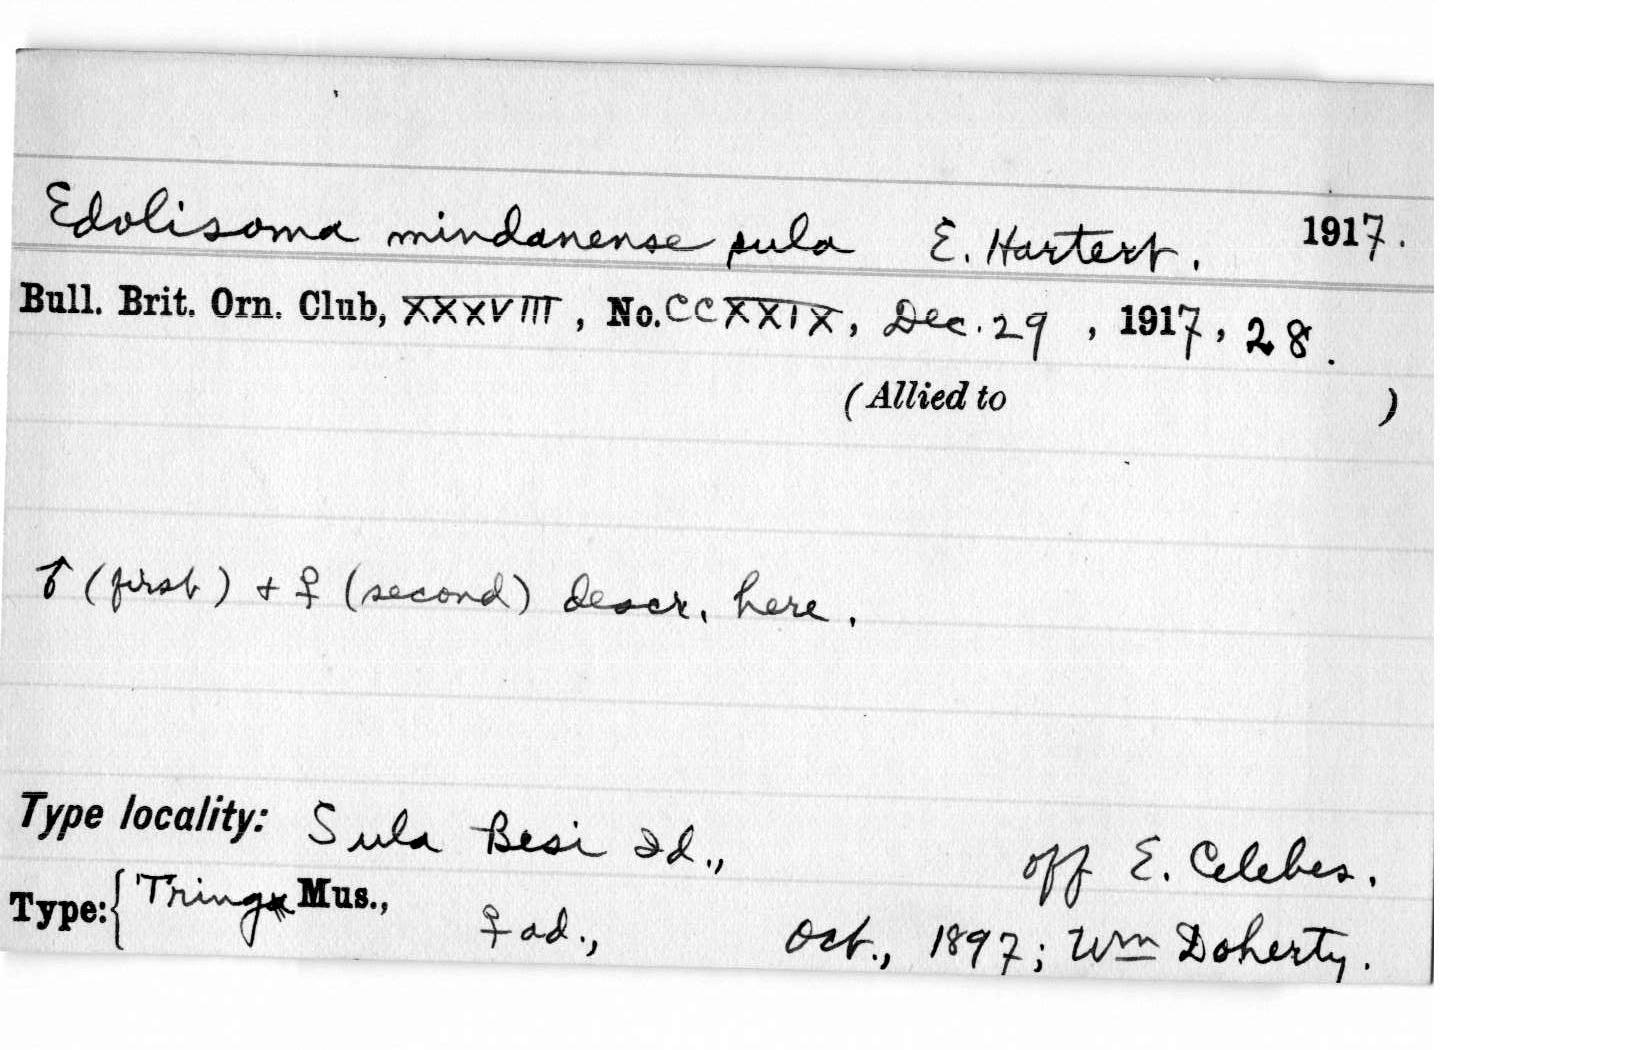 Edolisoma mindanense sula E. Hartert. 1917.
Bull. Brit. Orn. Club, XXXVIII, No. CCXXIX, Dec. 29, 1917, 28.
(Allied to )
♂ (first) + ♀ (second) descr. here.
Type locality: Sula Besi Id., off E. Celebes.
Type: { Tring Mus., ♀ ad., Oct., 1897; Wm Doherty.